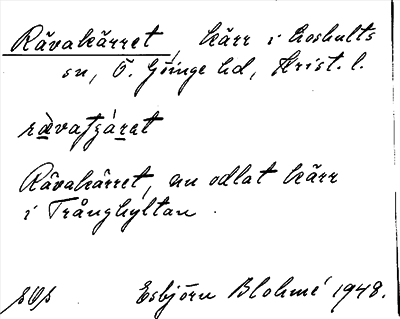 Rävakärret, kärr i Loshults
sn, Ö. Göinge hd, Krist. l.
rävatʃä́rat
Rävakärret, nu odlat kärr
i Trånghyltan.
Esbjörn Blohmé 1948.